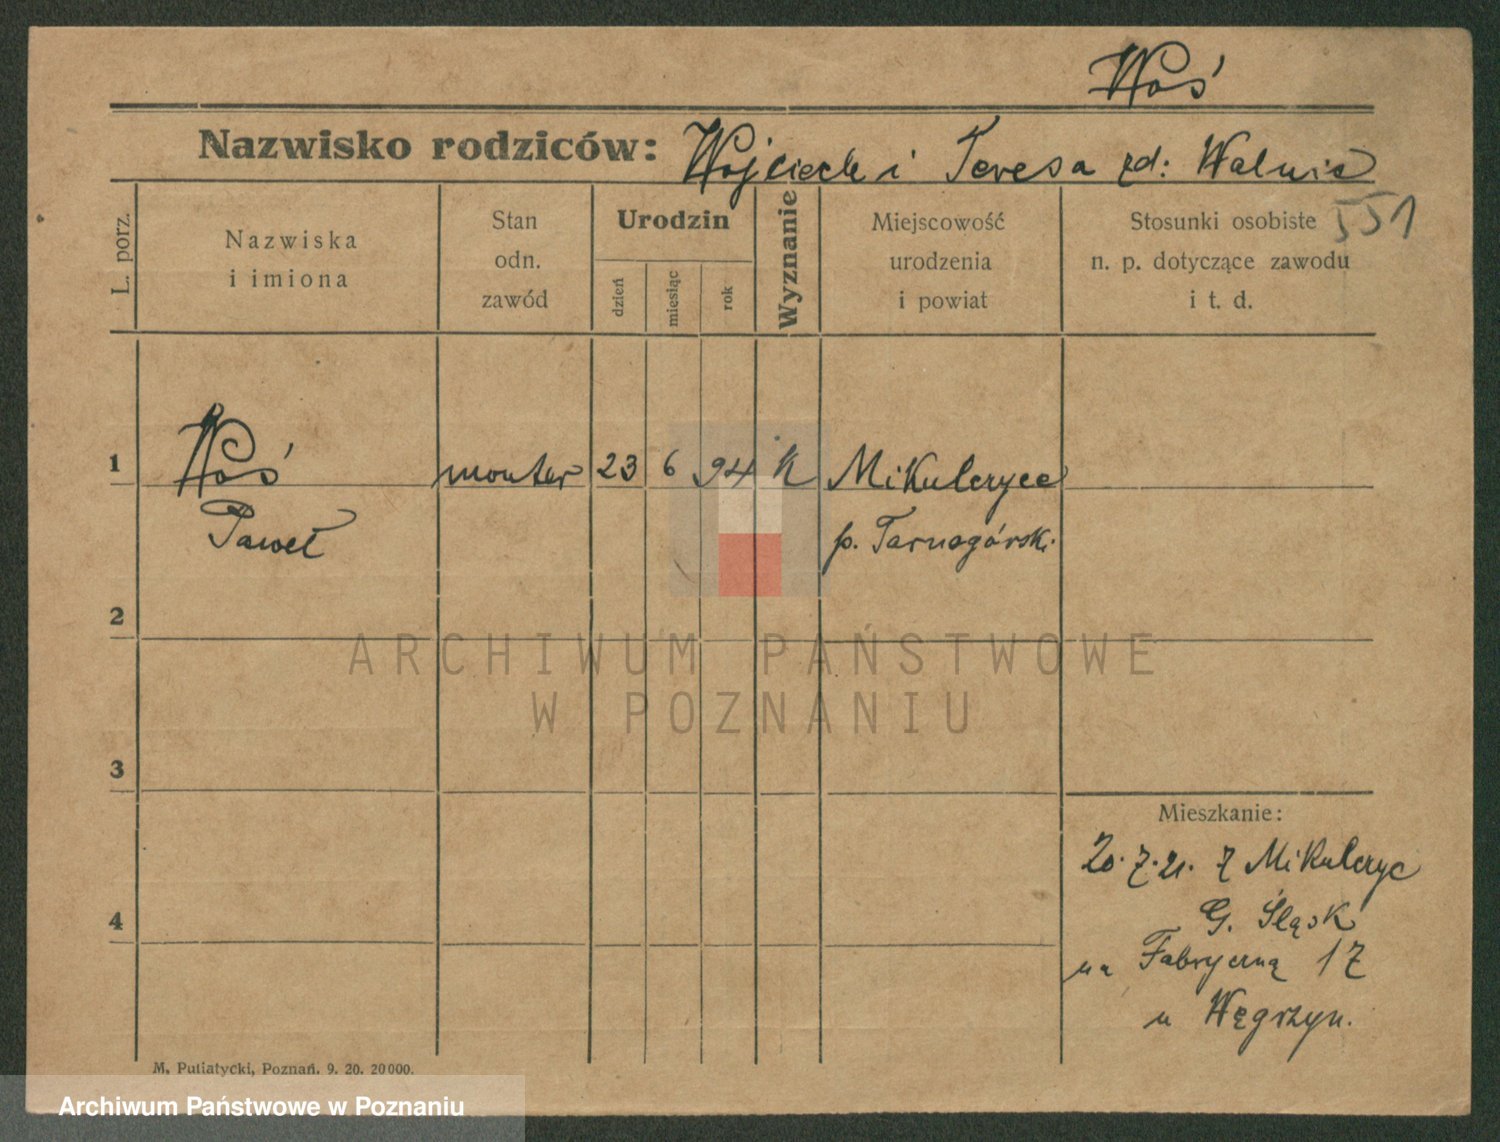 Woś
Nazwisko rodziców: Wojciech i Teresa zd: Walnia
551
L. porz.
Nazwiska
i imiona
Stan
odn.
zawód
Urodzin
dzień
miesiąc
rok
Wyznanie
Miejscowość
urodzenia
i powiat
Stosunki osobiste
n. p. dotyczące zawodu
i t. d.
1 Woś monter 23 6 94 K Mikulczyce
Paweł p. Tarnogórski.
2
ARCHIWUM PAŃSTWOWE
W POZNANIU
3
Mieszkanie:
20.7.21. z Mikulczyc
4
G. Śląsk
na Fabryczną 17
u Węgrzyn.
M. Putiatycki, Poznań. 9. 20. 20000.
Archiwum Państwowe w Poznaniu